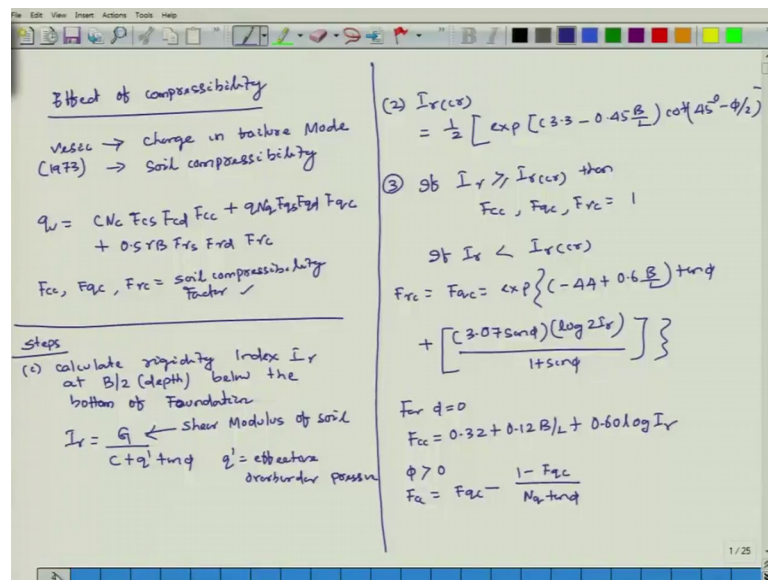 File Edit View Insert Actions Tools Help
Effect of compressibility
Vesic → change in failure Mode
(1973) → Soil compressibility
qu = CNc Fcs Fcd Fcc + qNq Fqs Fqd Fqc
+ 0.5 γB Frs Frd Frc
Fcc, Fqc, Frc = soil compressibility
Factor ✓
Steps
(c) calculate rigidity Index Ir
at B/2 (depth) below the
bottom of Foundation
Ir = G / (C + q' tanφ) ← Shear Modulus of soil
q' = effective
overburden pressure
(2) Ir(cr)
= 1/2 [ exp [(3.3 - 0.45 B/L) cot(45° - φ/2)]
③ If Ir ≥ Ir(cr) then
Fcc, Fqc, Frc = 1
If Ir < Ir(cr)
Frc = Fqc = exp{(-44 + 0.6 B/L) tanφ
+ [(3.07 sinφ)(log 2Ir) / 1 + sinφ]}
For φ=0
Fcc = 0.32 + 0.12 B/L + 0.60 log Ir
φ > 0
Fcc = Fqc - (1 - Fqc) / (Nq tanφ)
1 / 25